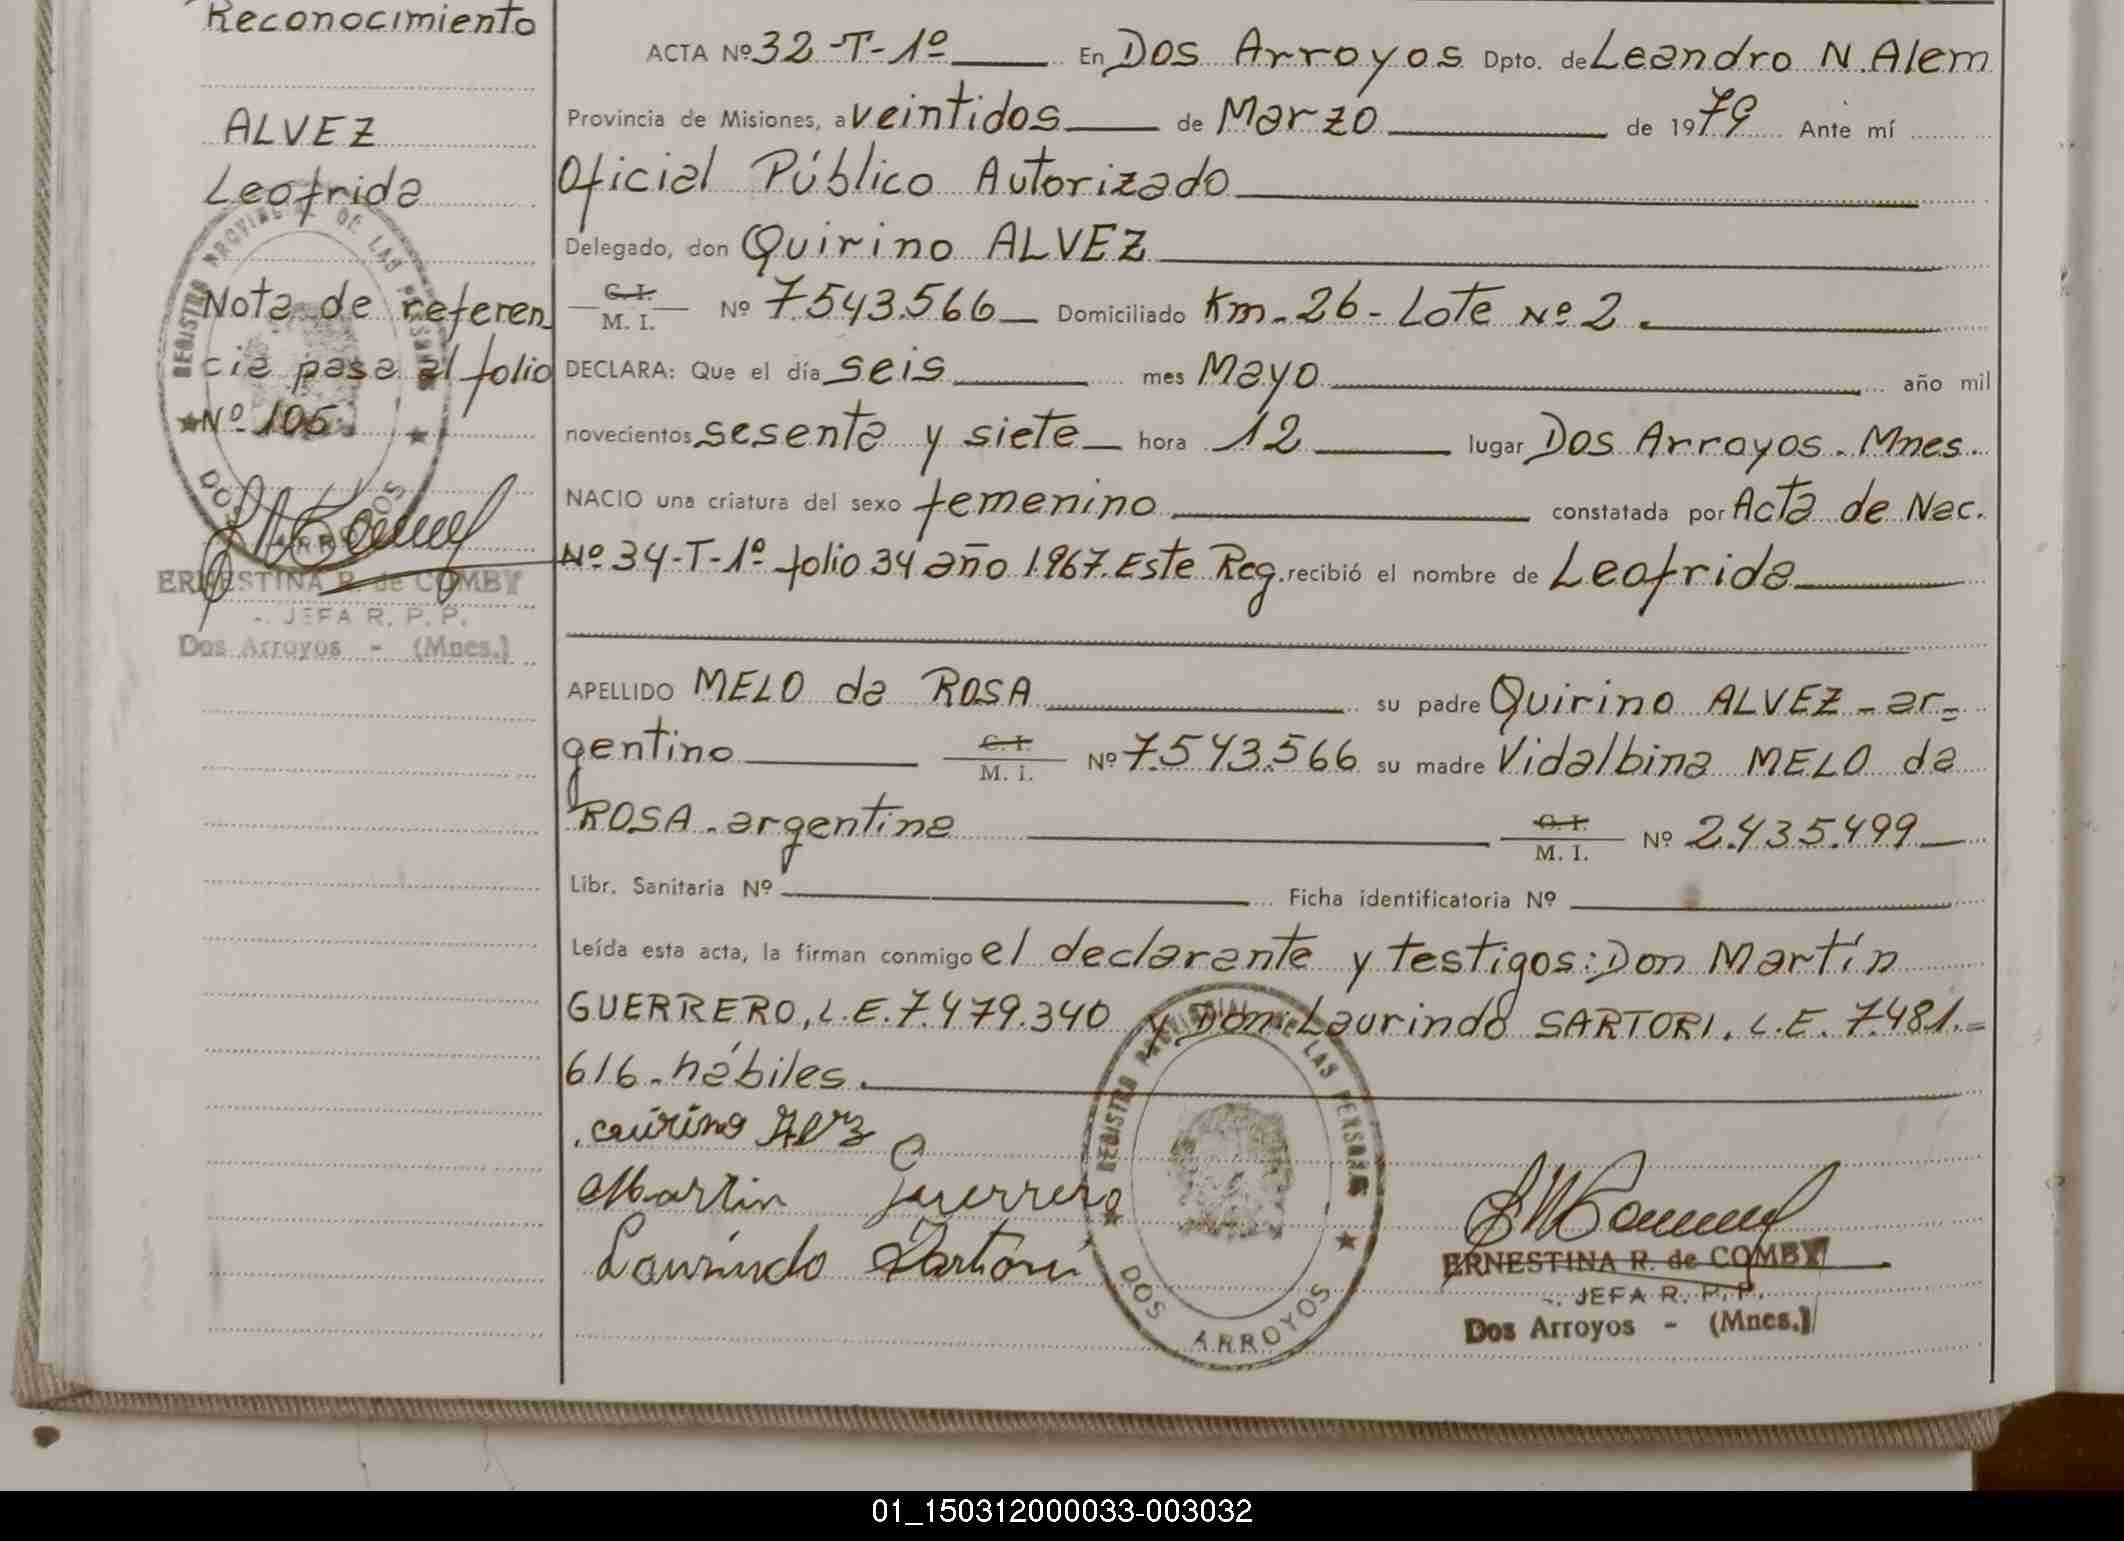 Reconocimiento
ALVEZ
Leofrida
Nota de referen
cia pasa al folio
Nº 106.
REGISTRO PROVINCIAL DE LAS PERSONAS
DOS ARROYOS
ERNESTINA R. de COMBY
-. JEFA R. P. P.
Dos Arroyos - (Mnes.)
ACTA Nº 32-T-1º En Dos Arroyos Dpto. de Leandro N. Alem
Provincia de Misiones, a veintidos de Marzo de 1979 Ante mí
Oficial Público Autorizado
Delegado, don Quirino ALVEZ
C. I.
M. I. Nº 7.543.566 Domiciliado Km. 26 - Lote Nº 2.
DECLARA: Que el día seis mes Mayo año mil
novecientos sesenta y siete hora 12 lugar Dos Arroyos. Mnes.
NACIO una criatura del sexo femenino constatada por Acta de Nac.
Nº 34-T-1º folio 34 año 1.967. Este Reg. recibió el nombre de Leofrida
APELLIDO MELO da ROSA su padre Quirino ALVEZ - ar=
gentino C. I.
M. I. Nº 7.543.566 su madre Vidalbina MELO da
ROSA. argentina C. I.
M. I. Nº 2.435.499
Libr. Sanitaria Nº Ficha identificatoria Nº
Leída esta acta, la firman conmigo el declarante y testigos: Don Martín
GUERRERO, L.E. 7.479.340 y Don Laurindo SARTORI. L.E. 7.481.=
616. hábiles.
Martin Guerrero
Laurindo Sartori
REGISTRO PROVINCIAL DE LAS PERSONAS
DOS ARROYOS
ERNESTINA R. de COMBY
-. JEFA R. P. P.
Dos Arroyos - (Mnes.)
01_150312000033-003032